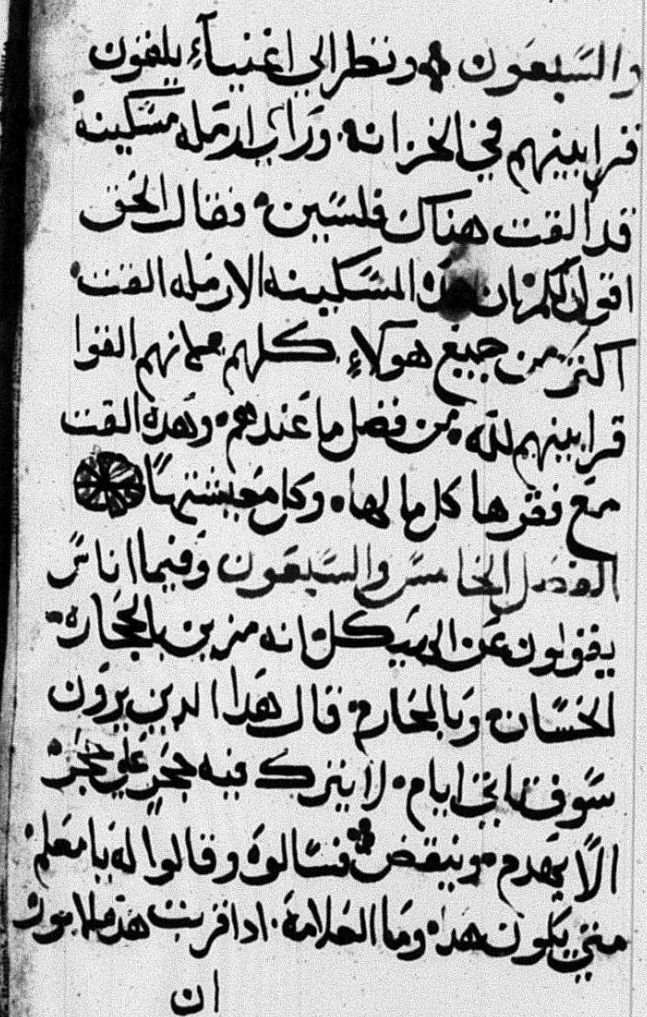 والسبعون ونظر الي اغنيآءٍ يلقون
قرابينهم في الخزانه ورأي ارمله مسكينه
قد القت هناك فلسين فقال الحق
اقول لكم ان هذه المسكينه الارمله القت
اكثر من جميع هولاءِ كلهم انهم القوا
قرابينهم لله من فضل ما عندهم وهذه القت
مع فقرها كل ما لها وكل معيشتها
الفصل الخامس والسبعون وفيما اناس
يقولون عن الهيكل انه مزين بالحجاره
الحسان وبالمحارم قال هذا الدين يرون
سوف تاتي ايام لا يترك فيه حجر علي حجر
الا يهدم وينقض فسالوه وقالوا له يا معلم
متي يكون هذا وما العلامة ادا قربت هذه الامور
ان